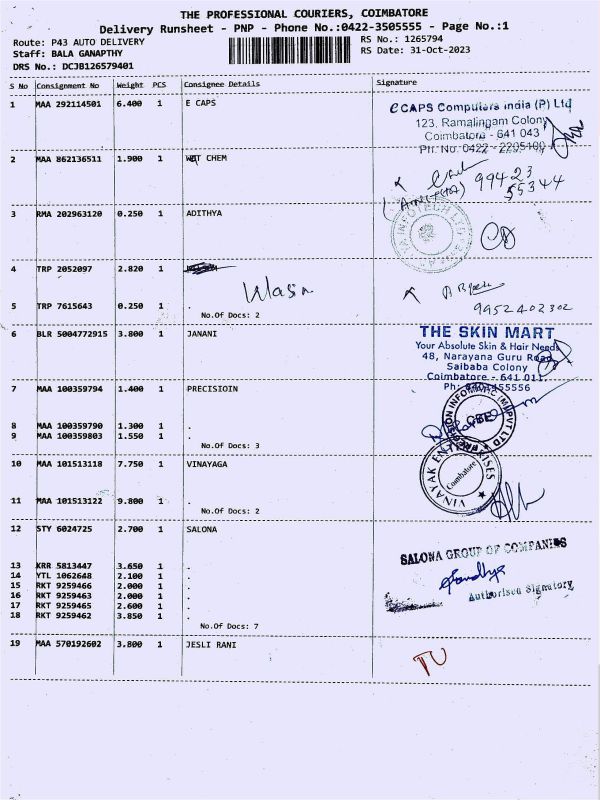 THE PROFESSIONAL COURIERS, COIMBATORE
Delivery Runsheet - PNP - Phone No.:0422-3505555 - Page No.:1
Route: P43 AUTO DELIVERY
RS No.: 1265794
Staff: BALA GANAPTHY
RS Date: 31-Oct-2023
DRS No.: DCJB126579401
S No Consignment No Weight PCS Consignee Details Signature
1 MAA 292114501 6.400 1 E CAPS
eCAPS Computers India (P) Ltd
123, Ramalingam Colony
Coimbatore - 641 043
Ph: No. 0422 - 2205100
2 MAA 862136511 1.900 1 WET CHEM
99423
55344
3 RMA 202963120 0.250 1 ADITHYA
4 TRP 2052097 2.820 1
5 TRP 7615643 0.250 1 .
No.Of Docs: 2
9952402302
6 BLR 5004772915 3.800 1 JANANI
THE SKIN MART
Your Absolute Skin & Hair Needs
48, Narayana Guru Road
Saibaba Colony
Coimbatore - 641 011.
7 MAA 100359794 1.400 1 PRECISIOIN
8 MAA 100359790 1.300 1 .
9 MAA 100359803 1.550 1 .
No.Of Docs: 3
CBE
10 MAA 101513118 7.750 1 VINAYAGA
VINAYAK ENTERPRISES
Coimbatore
11 MAA 101513122 9.800 1 .
No.Of Docs: 2
12 STY 6024725 2.700 1 SALONA
SALONA GROUP OF COMPANIES
13 KRR 5813447 3.650 1 .
14 YTL 1062648 2.100 1 .
15 RKT 9259466 2.000 1 .
16 RKT 9259463 2.000 1 .
17 RKT 9259465 2.600 1 .
18 RKT 9259462 3.850 1 .
Authorised Signatory
No.Of Docs: 7
19 MAA 570192602 3.800 1 JESLI RANI